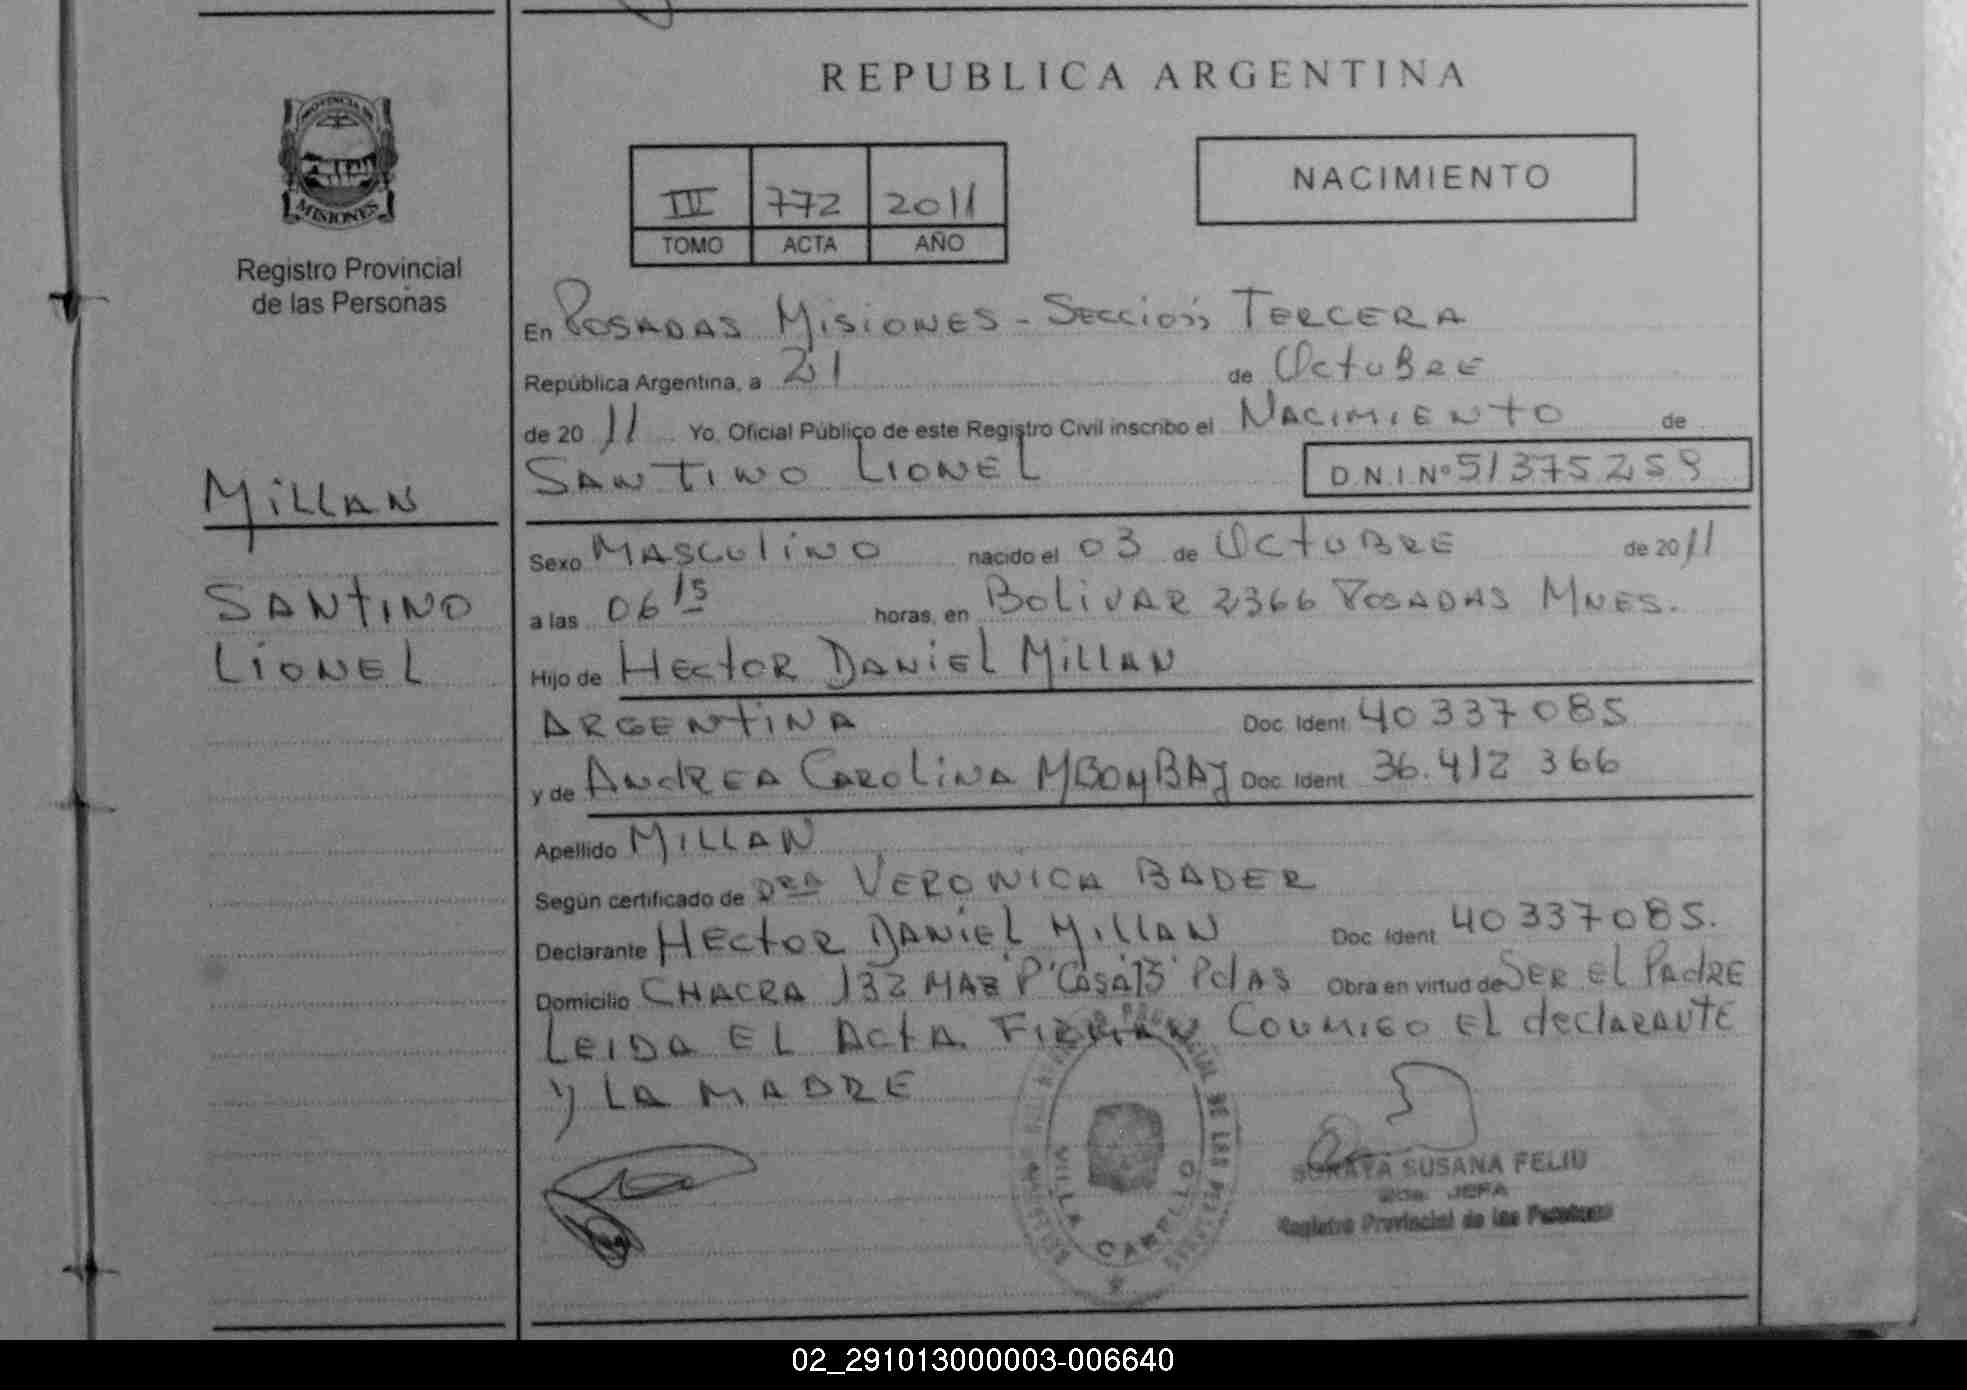 REPUBLICA ARGENTINA
PROVINCIA DE
MISIONES
Registro Provincial
de las Personas
III 772 2011
TOMO ACTA AÑO
NACIMIENTO
En POSADAS MisiONES - SECCióN TERCERA
República Argentina, a 21 de OctuBRE
de 20 11 Yo, Oficial Público de este Registro Civil inscribo el NACIMIENTO de
SANTINO LIONEL D.N.I.Nº 51375259
MiLLAN
SANTINO
LiONEL
Sexo MASCULINO nacido el 03 de OCTUBRE de 20 11
a las 06 15 horas, en BOLIVAR 2366 POSADAS MNES.
Hijo de HECTOR DANIEL MILLAN
ARGENTINA Doc. Ident. 40 337 085
y de ANdREA CAROLINA MBOMBAJ Doc. Ident. 36.412 366
Apellido MILLAN
Según certificado de DRA VERONICA BADER
Declarante HECTOR DANIEL MILLAN Doc. Ident. 40 337 085.
Domicilio CHACRA 132 MAZ 'P' CASA 13 PdAS Obra en virtud de SER EL PAdRE
LEIDA EL ACtA FIRMAN CONMIGO EL declARANTE
y LA MADRE
VILLA CARPILLO
SORAYA SUSANA FELIU
2da. JEFA
Registro Provincial de las Personas
02_291013000003-006640